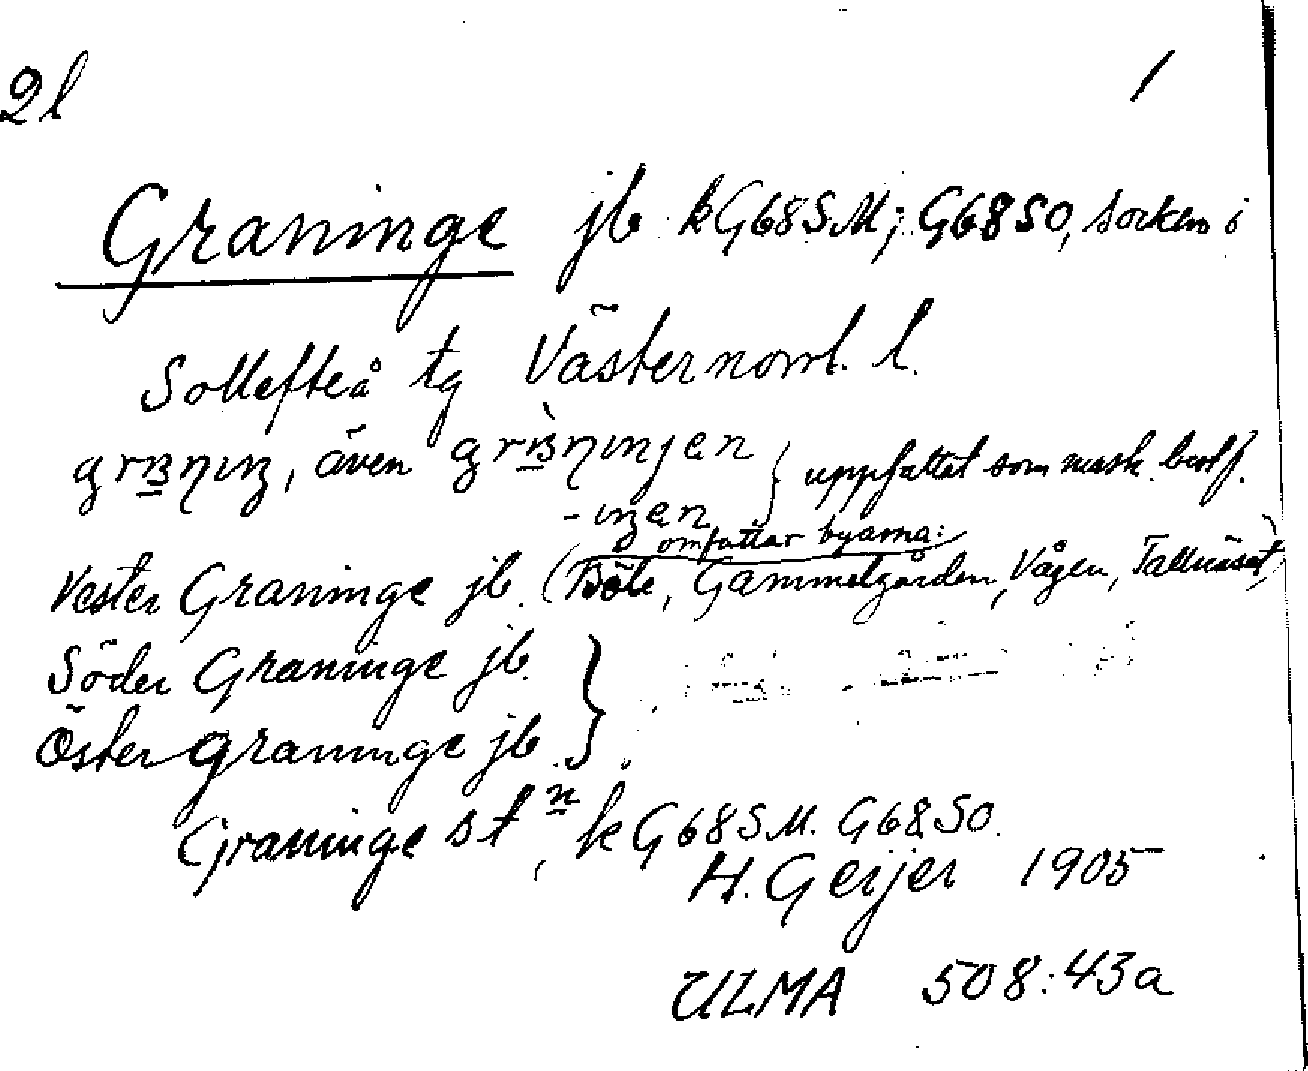 2l /
Graninge jb k G68SM; G68SO, socken i
Sollefteå tg Västernorrl. l.
även
uppfattat som mask. best f.
omfattar byarna:
Vester Graninge jb. (Böle, Gammelgården, Vågen, Tallnäset)
Söder Graninge jb.
Öster graninge jb. }
Graninge stn, k G68SM. G68SO.
H. Geijer 1905
ULMA 508:43a